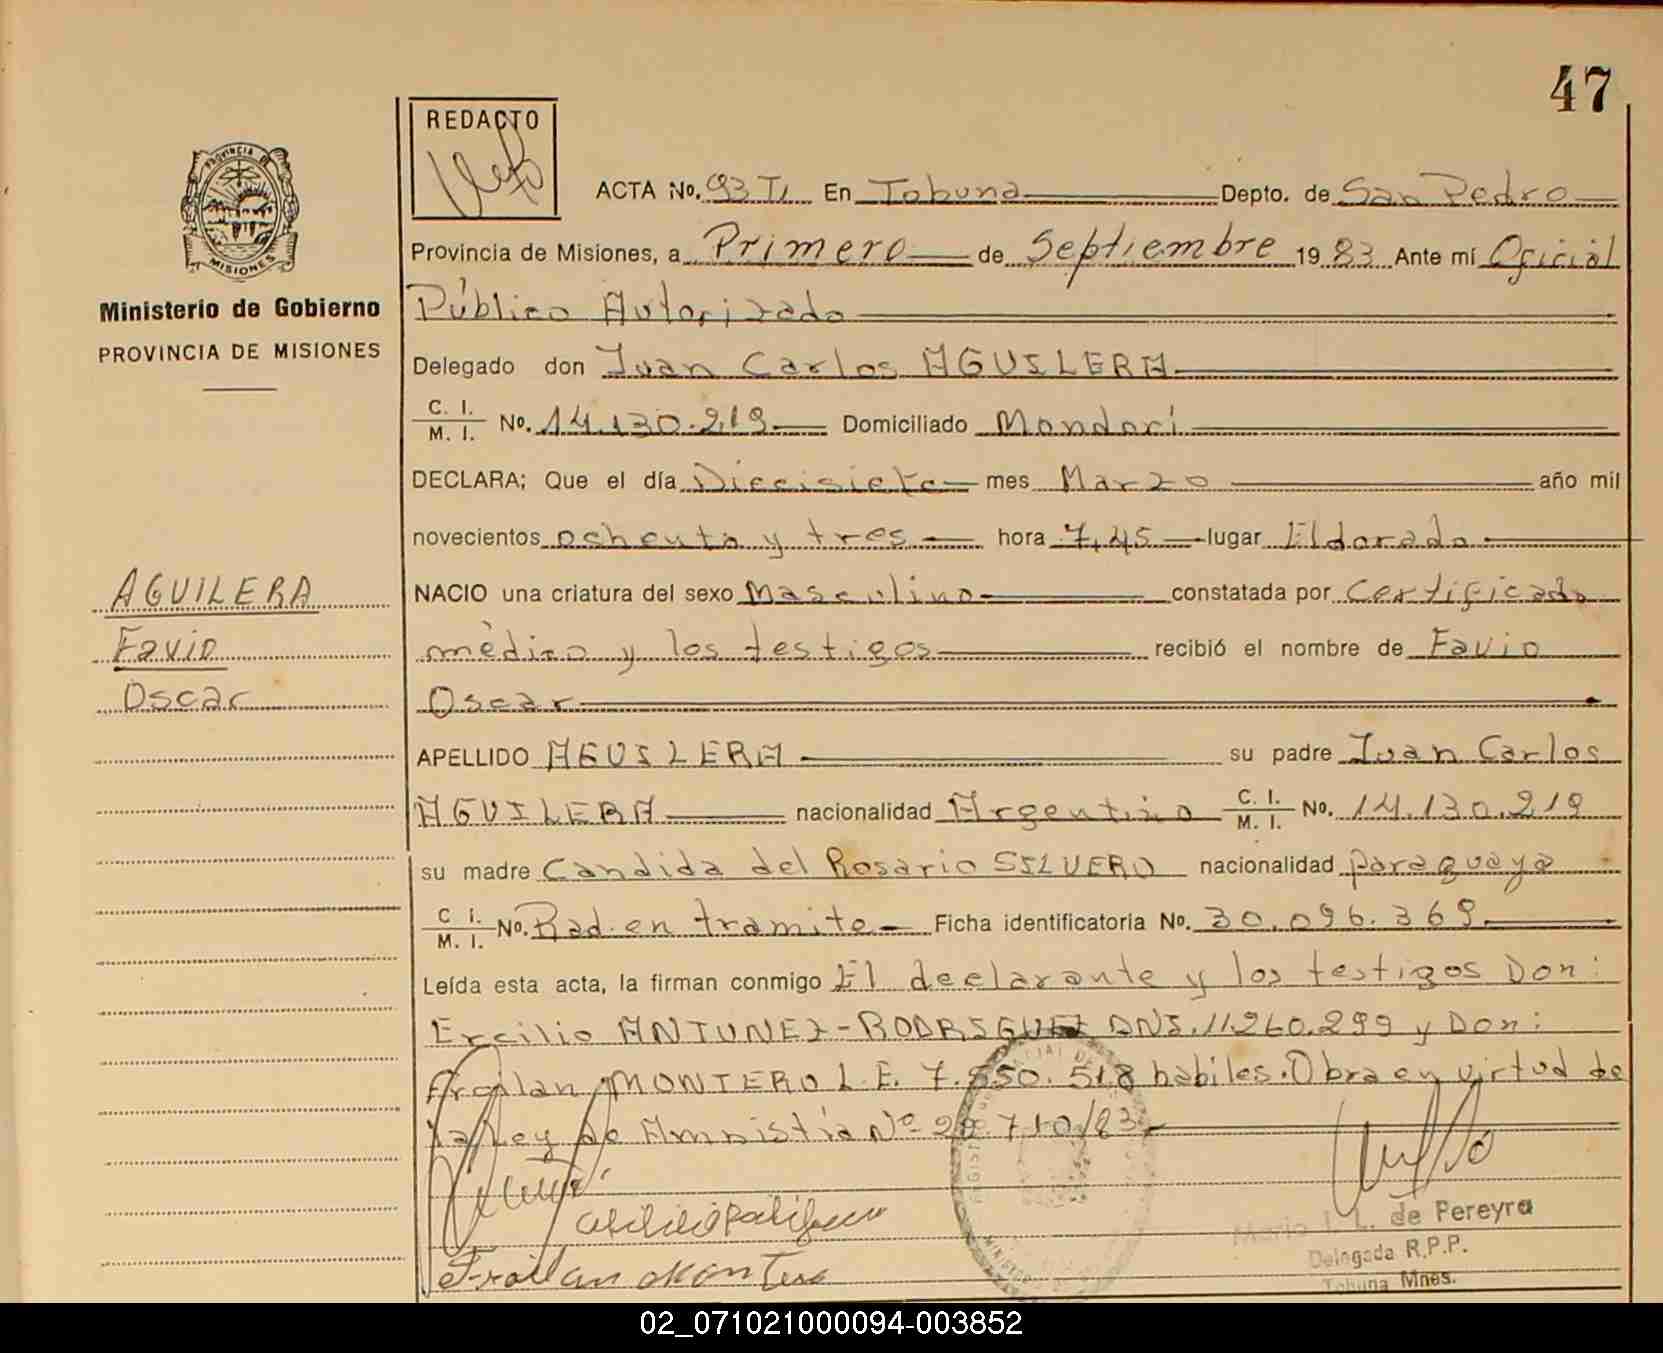 47
REDACTO
PROVINCIA DE
MISIONES
Ministerio de Gobierno
PROVINCIA DE MISIONES
ACTA No. 93 TI En Tobuna Depto. de San Pedro
Provincia de Misiones, a Primero de Septiembre 1983 Ante mí Oficial
Público Autorizado
Delegado don Juan Carlos AGUILERA
C. I.
M. I. No. 14.130.219 Domiciliado Mondorí
DECLARA; Que el día Diecisiete mes Marzo año mil
novecientos ochenta y tres hora 7,45 lugar Eldorado
AGUILERA
NACIO una criatura del sexo Masculino constatada por Certificado
Favio
médico y los testigos recibió el nombre de Favio
Oscar
Oscar
APELLIDO AGUILERA su padre Juan Carlos
AGUILERA nacionalidad Argentino C. I. M. I. No. 14.130.219
su madre Candida del Rosario SILVERO nacionalidad paraguaya
C. I. M. I. No. Rad. en tramite Ficha identificatoria No. 30.096.369
Leída esta acta, la firman conmigo El declarante y los testigos Don:
Ercilio ANTUNEZ-RODRIGUEZ DNI. 11.260.299 y Don:
Froilan MONTERO L.E. 7.550.518 habiles. Obra en virtud de
la Ley de Amnistía Nº 22.710/83
Froilan Montero
L. de Pereyra
Delegada R.P.P.
Tobuna Mnes.
02_071021000094-003852